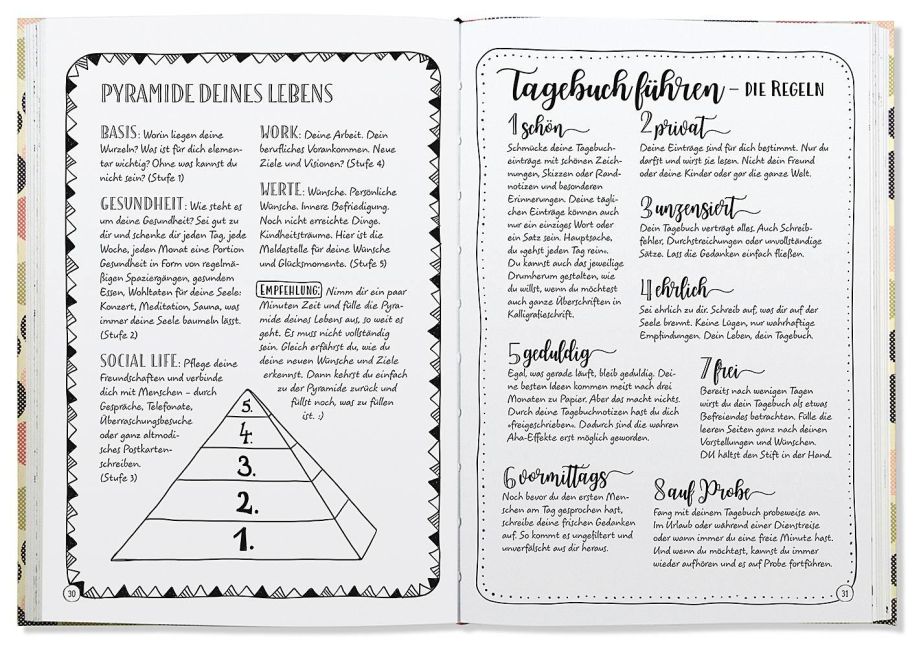 PYRAMIDE DEINES LEBENS
BASIS: Worin liegen deine
Wurzeln? Was ist für dich elemen-
tar wichtig? Ohne was kannst du
nicht sein? (Stufe 1)
GESUNDHEIT: Wie steht es
um deine Gesundheit? Sei gut zu
dir und schenke dir jeden Tag, jede
Woche, jeden Monat eine Portion
Gesundheit in Form von regelmä-
ßigen Spaziergängen, gesundem
Essen, Wohltaten für deine Seele:
Konzert, Meditation, Sauna, was
immer deine Seele baumeln lässt.
(Stufe 2)
SOCIAL LIFE: Pflege deine
Freundschaften und verbinde
dich mit Menschen – durch
Gespräche, Telefonate,
Überraschungsbesuche
oder ganz altmodi-
sches Postkarten-
schreiben.
(Stufe 3)
WORK: Deine Arbeit. Dein
berufliches Vorankommen. Neue
Ziele und Visionen? (Stufe 4)
WERTE: Wünsche. Persönliche
Wünsche. Innere Befriedigung.
Noch nicht erreichte Dinge.
Kindheitsträume. Hier ist die
Meldestelle für deine Wünsche
und Glücksmomente. (Stufe 5)
EMPFEHLUNG: Nimm dir ein paar
Minuten Zeit und fülle die Pyra-
mide deines Lebens aus, so weit es
geht. Es muss nicht vollständig
sein. Gleich erfährst du, wie du
deine neuen Wünsche und Ziele
erkennst. Dann kehrst du einfach
zu der Pyramide zurück und
füllst noch, was zu füllen
ist. :)
5.
4.
3.
2.
1.
30
Tagebuch führen – DIE REGELN
1 schön
Schmücke deine Tagebuch-
einträge mit schönen Zeich-
nungen, Skizzen oder Rand-
notizen und besonderen
Erinnerungen. Deine tägli-
chen Einträge können auch
nur ein einziges Wort oder
ein Satz sein. Hauptsache,
du »gehst jeden Tag rein«.
Du kannst auch das jeweilige
Drumherum gestalten, wie
du willst, wenn du möchtest
auch ganze Überschriften in
Kalligrafieschrift.
2 privat
Deine Einträge sind für dich bestimmt. Nur du
darfst und wirst sie lesen. Nicht dein Freund
oder deine Kinder oder gar die ganze Welt.
3 unzensiert
Dein Tagebuch verträgt alles. Auch Schreib-
fehler, Durchstreichungen oder unvollständige
Sätze. Lass die Gedanken einfach fließen.
4 ehrlich
Sei ehrlich zu dir. Schreib auf, was dir auf der
Seele brennt. Keine Lügen, nur wahrhaftige
Empfindungen. Dein Leben, dein Tagebuch.
5 geduldig
Egal, was gerade läuft, bleib geduldig. Dei-
ne besten Ideen kommen meist nach drei
Monaten zu Papier. Aber das macht nichts.
Durch deine Tagebuchnotizen hast du dich
»freigeschrieben«. Dadurch sind die wahren
Aha-Effekte erst möglich geworden.
7 frei
Bereits nach wenigen Tagen
wirst du dein Tagebuch als etwas
Befreiendes betrachten. Fülle die
leeren Seiten ganz nach deinen
Vorstellungen und Wünschen.
DU hältst den Stift in der Hand.
6 vormittags
Noch bevor du den ersten Men-
schen am Tag gesprochen hast,
schreibe deine frischen Gedanken
auf. So kommt es ungefiltert und
unverfälscht aus dir heraus.
8 auf Probe
Fang mit deinem Tagebuch probeweise an.
Im Urlaub oder während einer Dienstreise
oder wann immer du eine freie Minute hast.
Und wenn du möchtest, kannst du immer
wieder aufhören und es auf Probe fortführen.
31